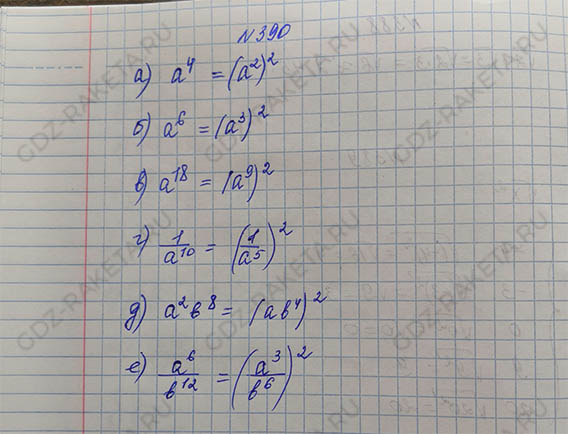 N390
а) a⁴ = (a²)²
б) a⁶ = (a³)²
в) a¹⁸ = (a⁹)²
г) 1/a¹⁰ = (1/a⁵)²
д) a²b⁸ = (ab⁴)²
е) a⁶/b¹² = (a³/b⁶)²
GDZ-RAKETA.RU